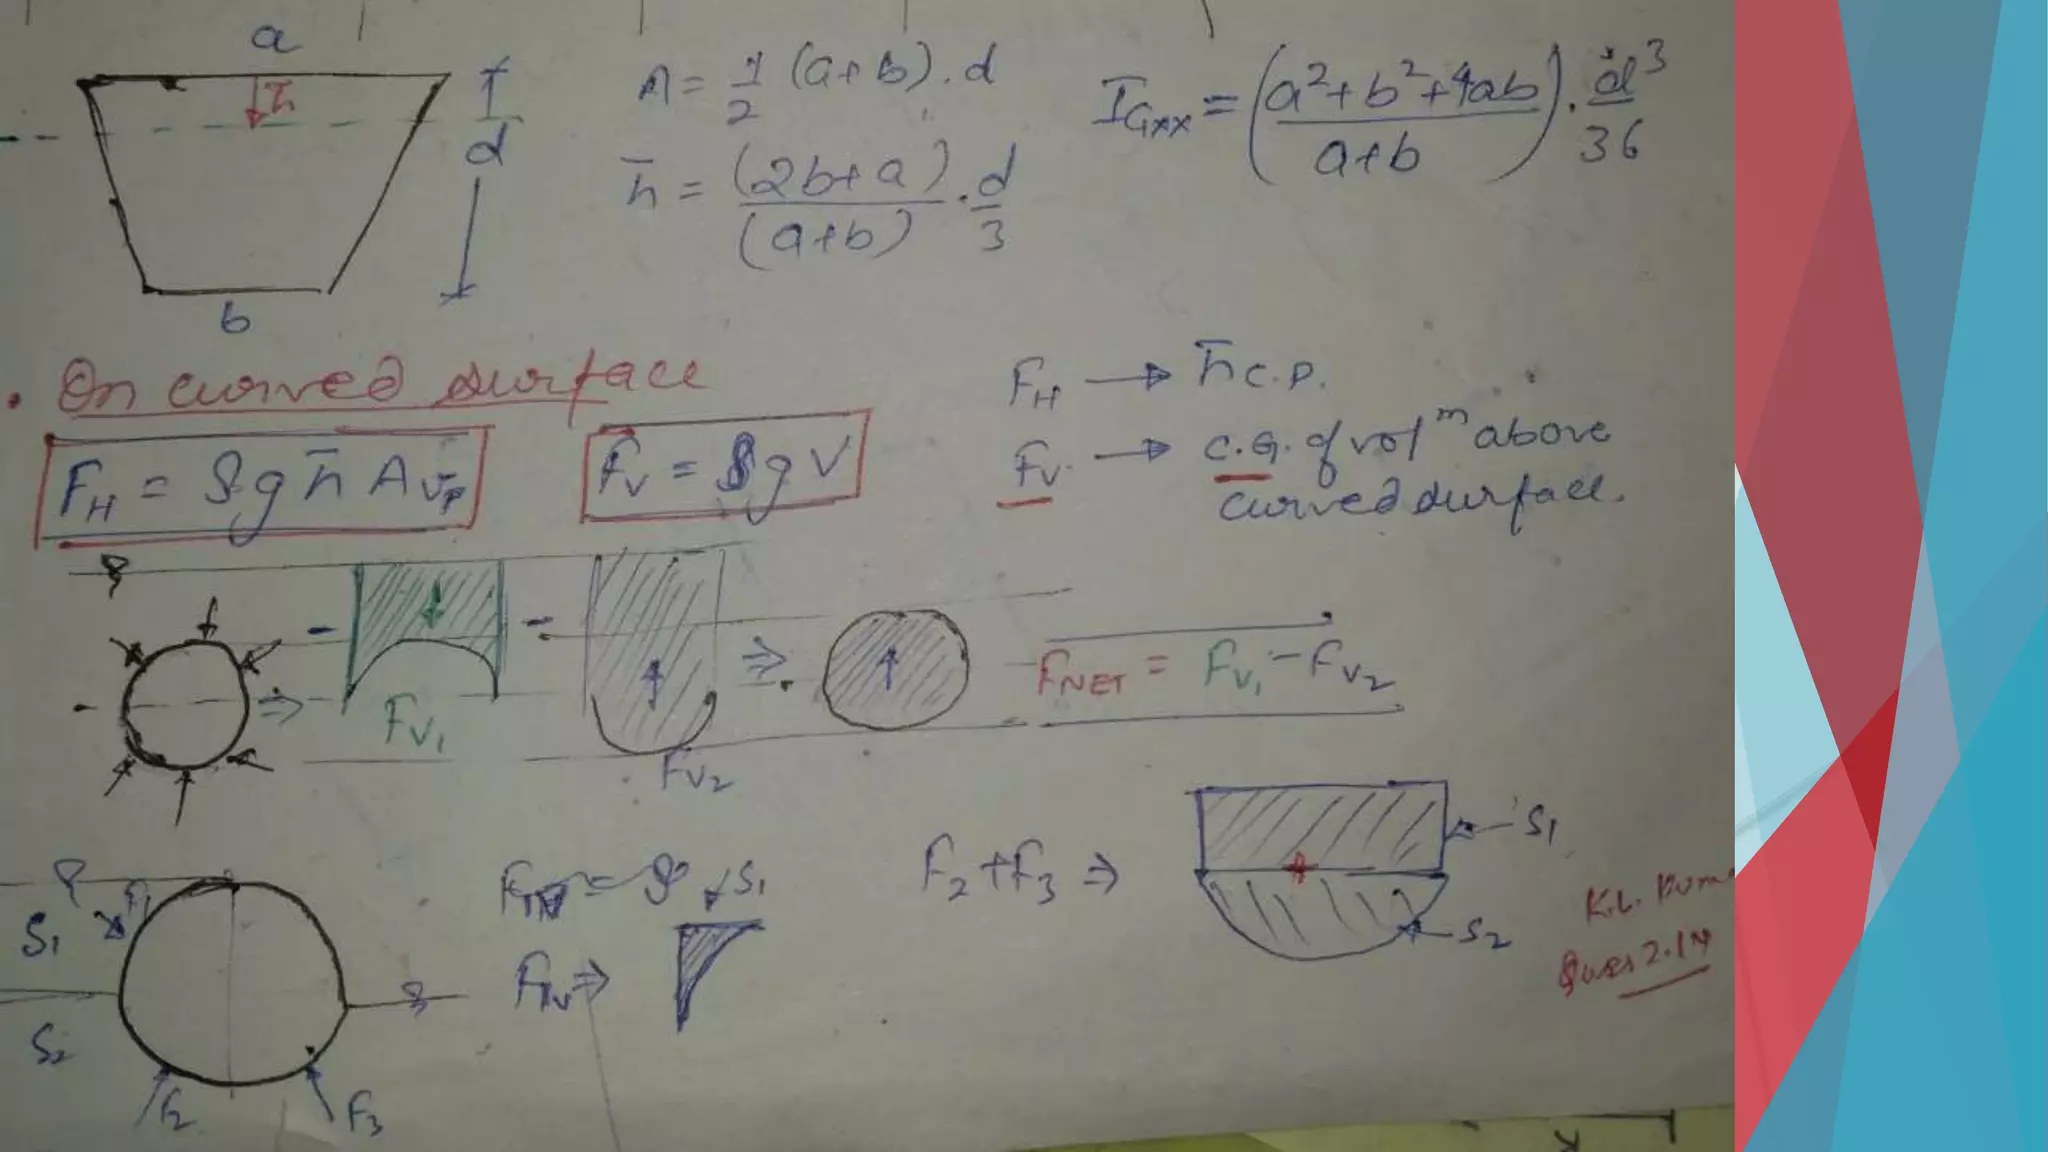 a
h̄
d
b
A = 1/2 (a+b).d
h̄ = (2b+a)/(a+b) . d/3
I_Gxx = ((a²+b²+4ab)/(a+b)) . d³/36
. On curved surface
F_H = ρg h̄ A_v.p
F_V = ρgV
F_H → h̄ c.p.
F_V → C.G. of volᵐ above
curved surface.
F_V1
F_V2
F_NET = F_V1 - F_V2
S1
S2
F1
F2
F3
F_1V ⇒
S1
F2+F3 ⇒
S1
S2
K.L.
Ques 2.14